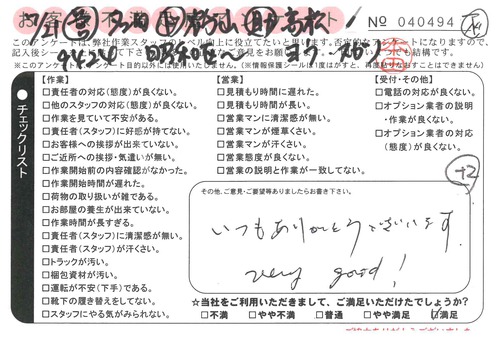 No 040494
このアンケートは、弊社作業スタッフのレベル向上に役立てたいと思います。否定的なアンケートになりますので、
※このアンケートは、アンケート目的以外には使用いたしません。
チェックリスト
【作業】
□責任者の対応(態度)が良くない。
□他のスタッフの対応(態度)が良くない。
□作業を見ていて不安がある。
□責任者(スタッフ)に好感が持てない。
□お客様への挨拶が出来ていない。
□ご近所への挨拶・気遣いが無い。
□作業開始前の内容確認がなかった。
□作業開始時間が遅れた。
□荷物の取り扱いが雑である。
□お部屋の養生が出来ていない。
□作業時間が長すぎる。
□責任者(スタッフ)に清潔感が無い。
□責任者(スタッフ)が汗くさい。
□トラックが汚い。
□梱包資材が汚い。
□運転が不安(下手)である。
□靴下の履き替えをしてない。
□スタッフにやる気がみられない。
【営業】
□見積もり時間に遅れた。
□見積もり時間が長い。
□営業マンに清潔感が無い。
□営業マンが煙草くさい。
□営業マンが汗くさい。
□営業態度が良くない。
□営業の説明と作業が一致してない。
【受付・その他】
□電話の対応が良くない。
□オプション業者の説明
・作業が良くない。
□オプション業者の対応
(態度)が良くない。
+2
その他、ご意見・ご要望等ありましたらお書き下さい。
いつもありがとうございます。
very good!
☆当社をご利用いただきまして、ご満足いただけたでしょうか?
□不満 □やや不満 □普通 □やや満足 □満足